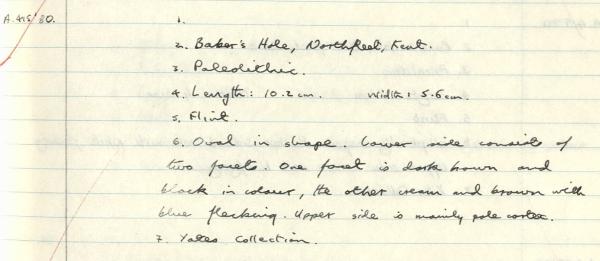 A.415'80.
1.
2. Baker's Hole, Northfleet, Kent.
3. Paleolithic.
4. Length: 10.2 cm. Width: 5.6 cm.
5. Flint.
6. Oval in shape. Lower side consists of
two facets. One facet is dark brown and
black in colour, the other cream and brown with
blue flecking. Upper side is mainly pale cortex.
7. Yates Collection.